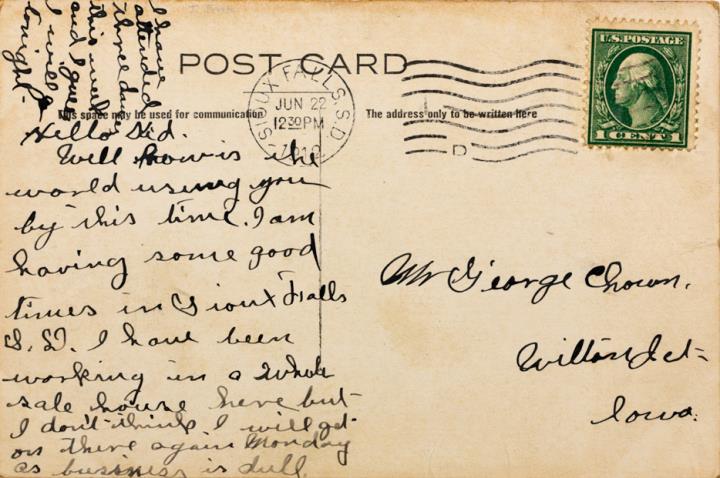 POST CARD
This space may be used for communication
The address only to be written here
SIOUX FALLS. S.D.
JUN 22
1230PM
D
U.S. POSTAGE
1 CENT 1
Hello Sid.
Well how is the
world using you
by this time. I am
having some good
times in Sioux Falls
S. D. I have been
working in a whole
sale house here but
I don't think I will get
on there again Monday
as bussiness is dull.
I have
attended
three dances
this week
and I guess
I will go
tonight.
Mr George Chown.
Wilton Jct-
Iowa.